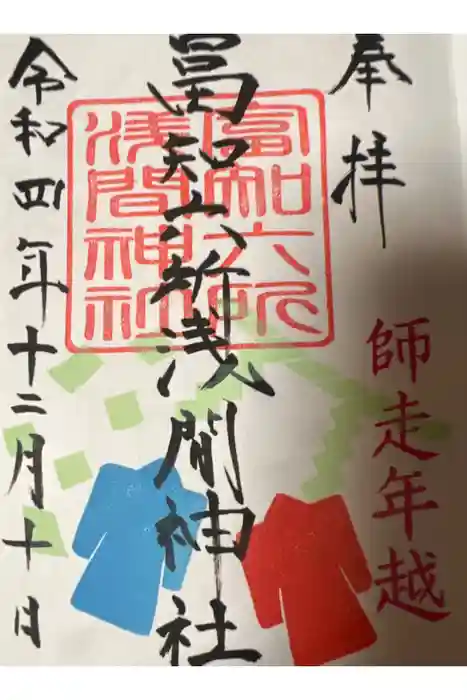 奉拝
師走年越
富知六所浅間神社
富知六所
浅間神社
令和四年十二月十日